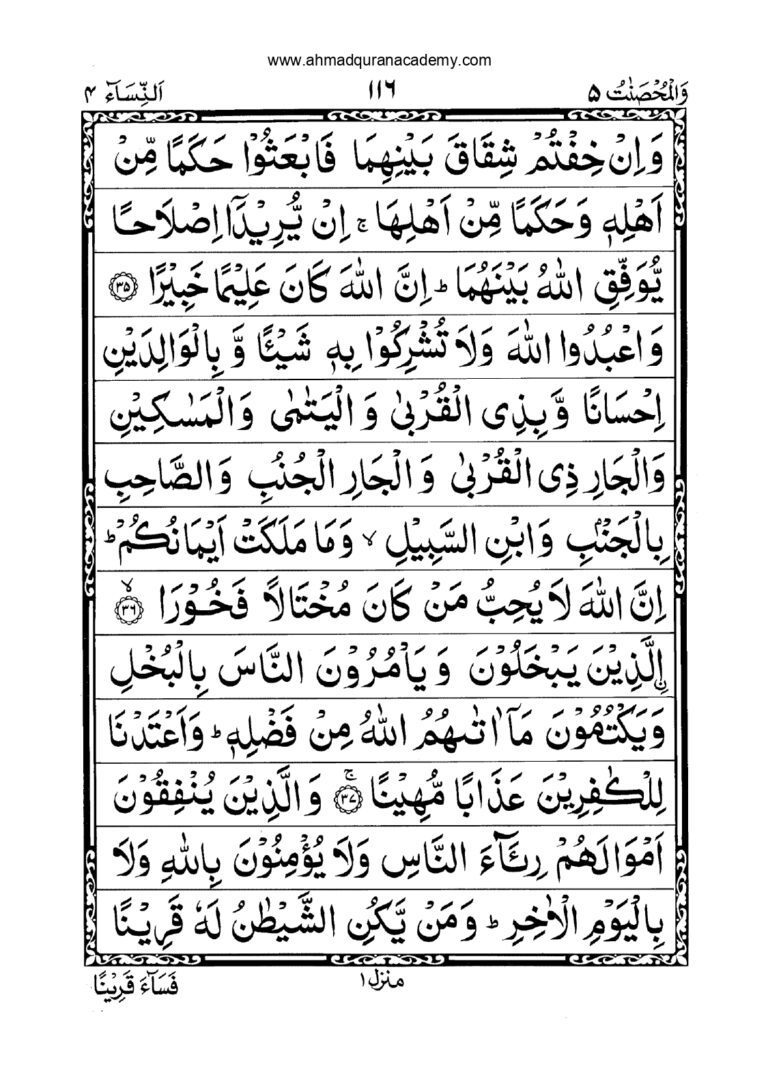 www.ahmadquranacademy.com
وَالْمُحْصَنٰتُ ۵
۱۱۶
اَلنِّسَآءَ ۴
وَاِنْ خِفْتُمْ شِقَاقَ بَيْنِهِمَا فَابْعَثُوْا حَكَمًا مِّنْ
اَهْلِهٖ وَحَكَمًا مِّنْ اَهْلِهَا ۚ اِنْ يُّرِيْدَآ اِصْلَاحًا
يُّوَفِّقِ اللّٰهُ بَيْنَهُمَا ؕ اِنَّ اللّٰهَ كَانَ عَلِيْمًا خَبِيْرًا ﴿۳۵﴾
وَاعْبُدُوا اللّٰهَ وَلَا تُشْرِكُوْا بِهٖ شَيْئًا وَّ بِالْوَالِدَيْنِ
اِحْسَانًا وَّبِذِى الْقُرْبٰى وَالْيَتٰمٰى وَالْمَسٰكِيْنِ
وَالْجَارِ ذِى الْقُرْبٰى وَالْجَارِ الْجُنُبِ وَالصَّاحِبِ
بِالْجَنْۢبِ وَابْنِ السَّبِيْلِ ۙ وَمَا مَلَكَتْ اَيْمَانُكُمْ ؕ
اِنَّ اللّٰهَ لَا يُحِبُّ مَنْ كَانَ مُخْتَالًا فَخُوْرَا ۙ﴿۳۶﴾
اۨلَّذِيْنَ يَبْخَلُوْنَ وَيَاْمُرُوْنَ النَّاسَ بِالْبُخْلِ
وَيَكْتُمُوْنَ مَاۤ اٰتٰٮهُمُ اللّٰهُ مِنْ فَضْلِهٖ ؕ وَاَعْتَدْنَا
لِلْكٰفِرِيْنَ عَذَابًا مُّهِيْنًا ۚ﴿۳۷﴾ وَالَّذِيْنَ يُنْفِقُوْنَ
اَمْوَالَهُمْ رِئَآءَ النَّاسِ وَلَا يُؤْمِنُوْنَ بِاللّٰهِ وَلَا
بِالْيَوْمِ الْاٰخِرِ ؕ وَمَنْ يَّكُنِ الشَّيْطٰنُ لَهٗ قَرِيْنًا
منزل ۱
فَسَآءَ قَرِيْنًا